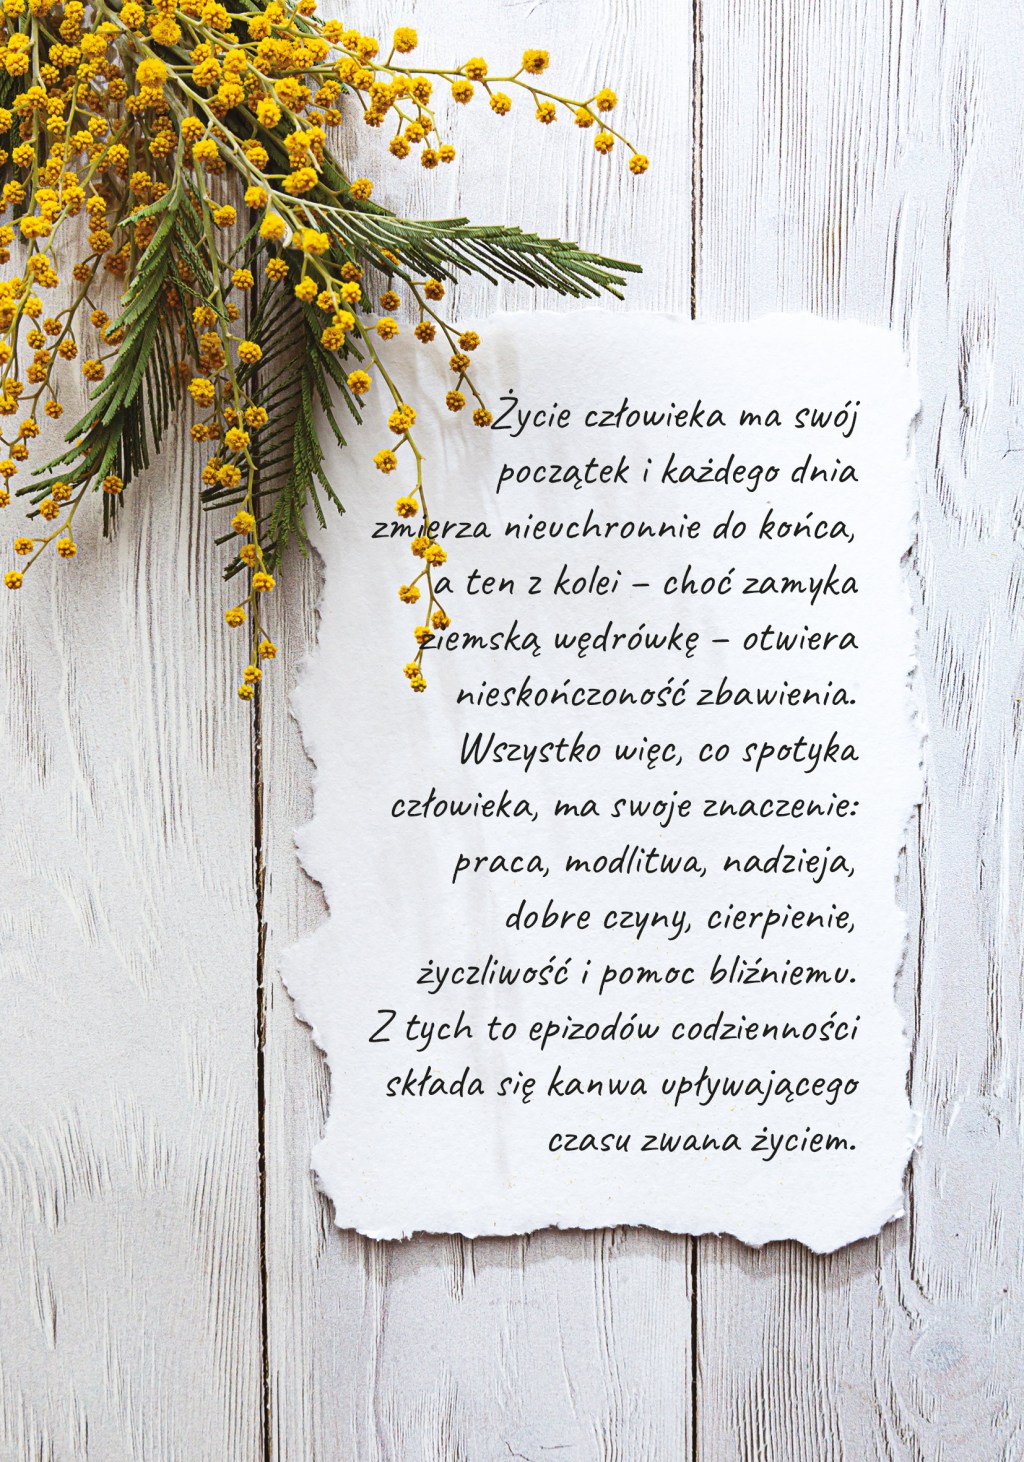 Życie człowieka ma swój
początek i każdego dnia
zmierza nieuchronnie do końca,
a ten z kolei – choć zamyka
ziemską wędrówkę – otwiera
nieskończoność zbawienia.
Wszystko więc, co spotyka
człowieka, ma swoje znaczenie:
praca, modlitwa, nadzieja,
dobre czyny, cierpienie,
życzliwość i pomoc bliźniemu.
Z tych to epizodów codzienności
składa się kanwa upływającego
czasu zwana życiem.